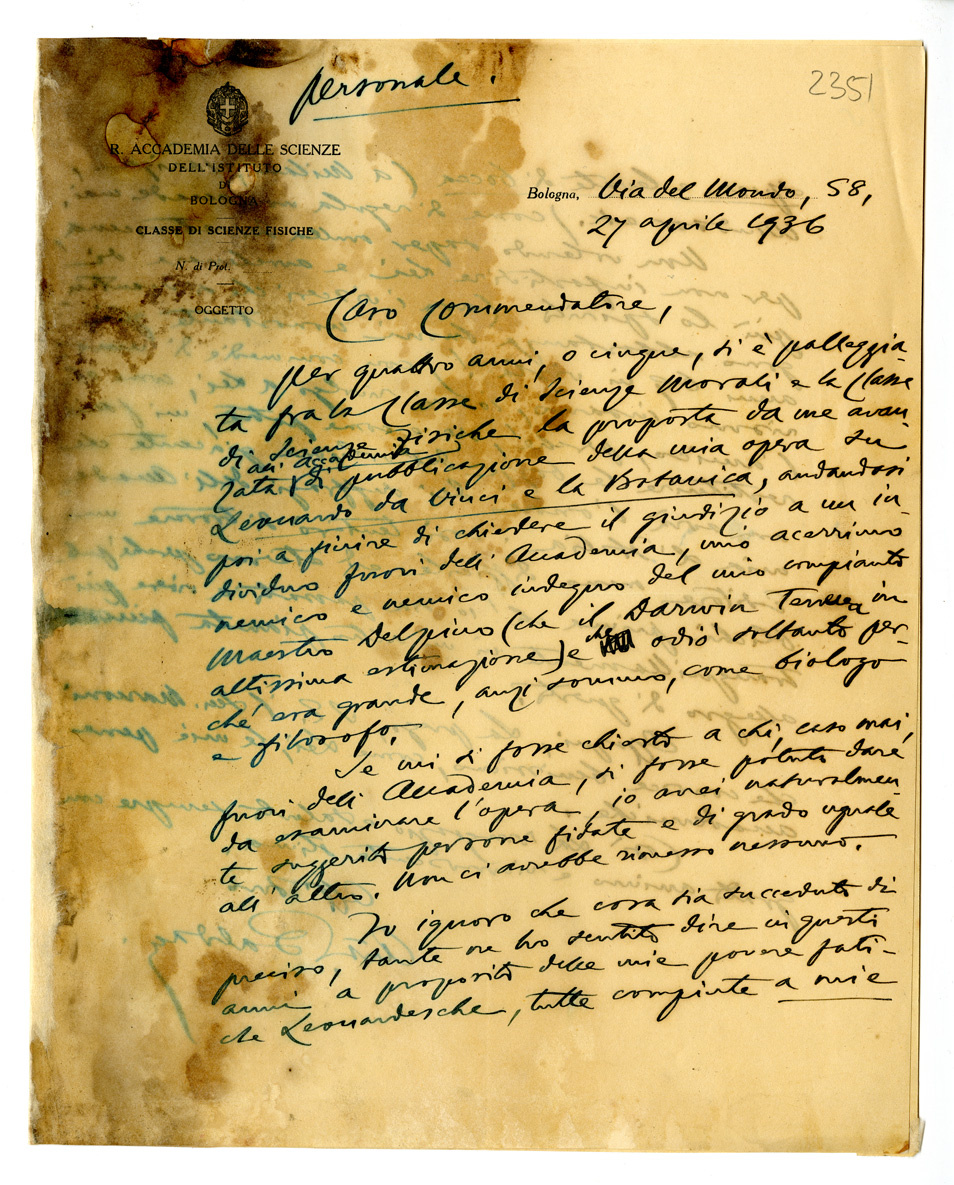 personale.
2351
R. ACCADEMIA DELLE SCIENZE
DELL'ISTITUTO
DI
BOLOGNA
CLASSE DI SCIENZE FISICHE
N. di Prot.
OGGETTO
Bologna, Via del Mondo, 58,
27 aprile 1936
Caro Commendatore,
per quattro anni, o cinque, si è palleggia
ta fra la Classe di Scienze Morali e la Classe
di Scienze Fisiche la proposta da me avan
zata di pubblicazione della mia opera su
Leonardo da Vinci e la Botanica, andandosi
poi a finire di chiedere il giudizio a un in-
dividuo fuori dell'Accademia, mio acerrimo
nemico e nemico indegno del mio compianto
Maestro Delpino (che il Darwin Teneva in
altissima estimazione) e che odiò soltanto per-
ché era grande, anzi sommo, come biologo
e filosofo.
Se mi si fosse chiesto a chi, caso mai,
fuori dell'Accademia, si fosse potuto dare
da esaminare l'opera, io avrei naturalmen
te suggerito persone fidate e di grado uguale
all'altro. Non ci avrebbe rimesso nessuno.
Io ignoro che cosa sia succeduto di
preciso, tante ne ho sentito dire in questi
anni a proposito delle mie povere fati-
che Leonardesche, tutte compiute a mie